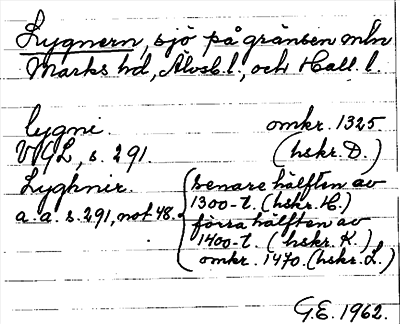 Lygnern, sjö på gränsen mln
Marks hd, Älvsb. l., och Hall. l.
lygni. omkr. 1325
VGL, s. 291. (hskr. D.)
Lyghnir. senare hälften av
a. a. s. 291, not 48. 1300-t. (hskr. H.)
förra hälften av
1400-t. (hskr. K.)
omkr. 1470. (hskr. L.)
G.E. 1962.